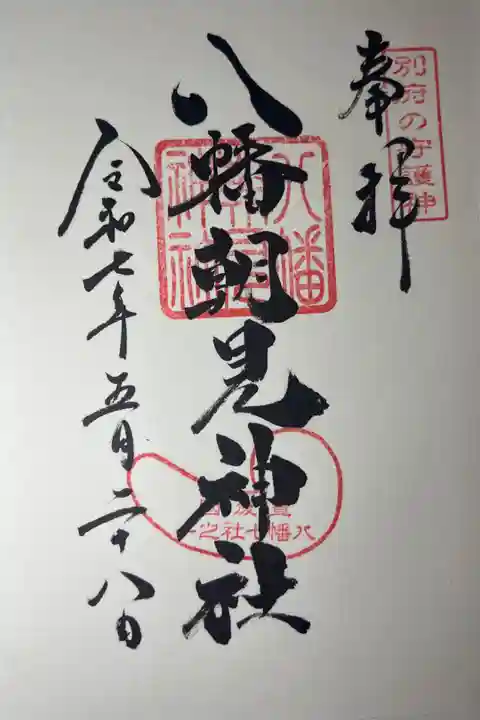 奉拝
別府の守護神
八幡朝見神社
八幡朝見神社
八幡七社之一
令和七年五月二十八日